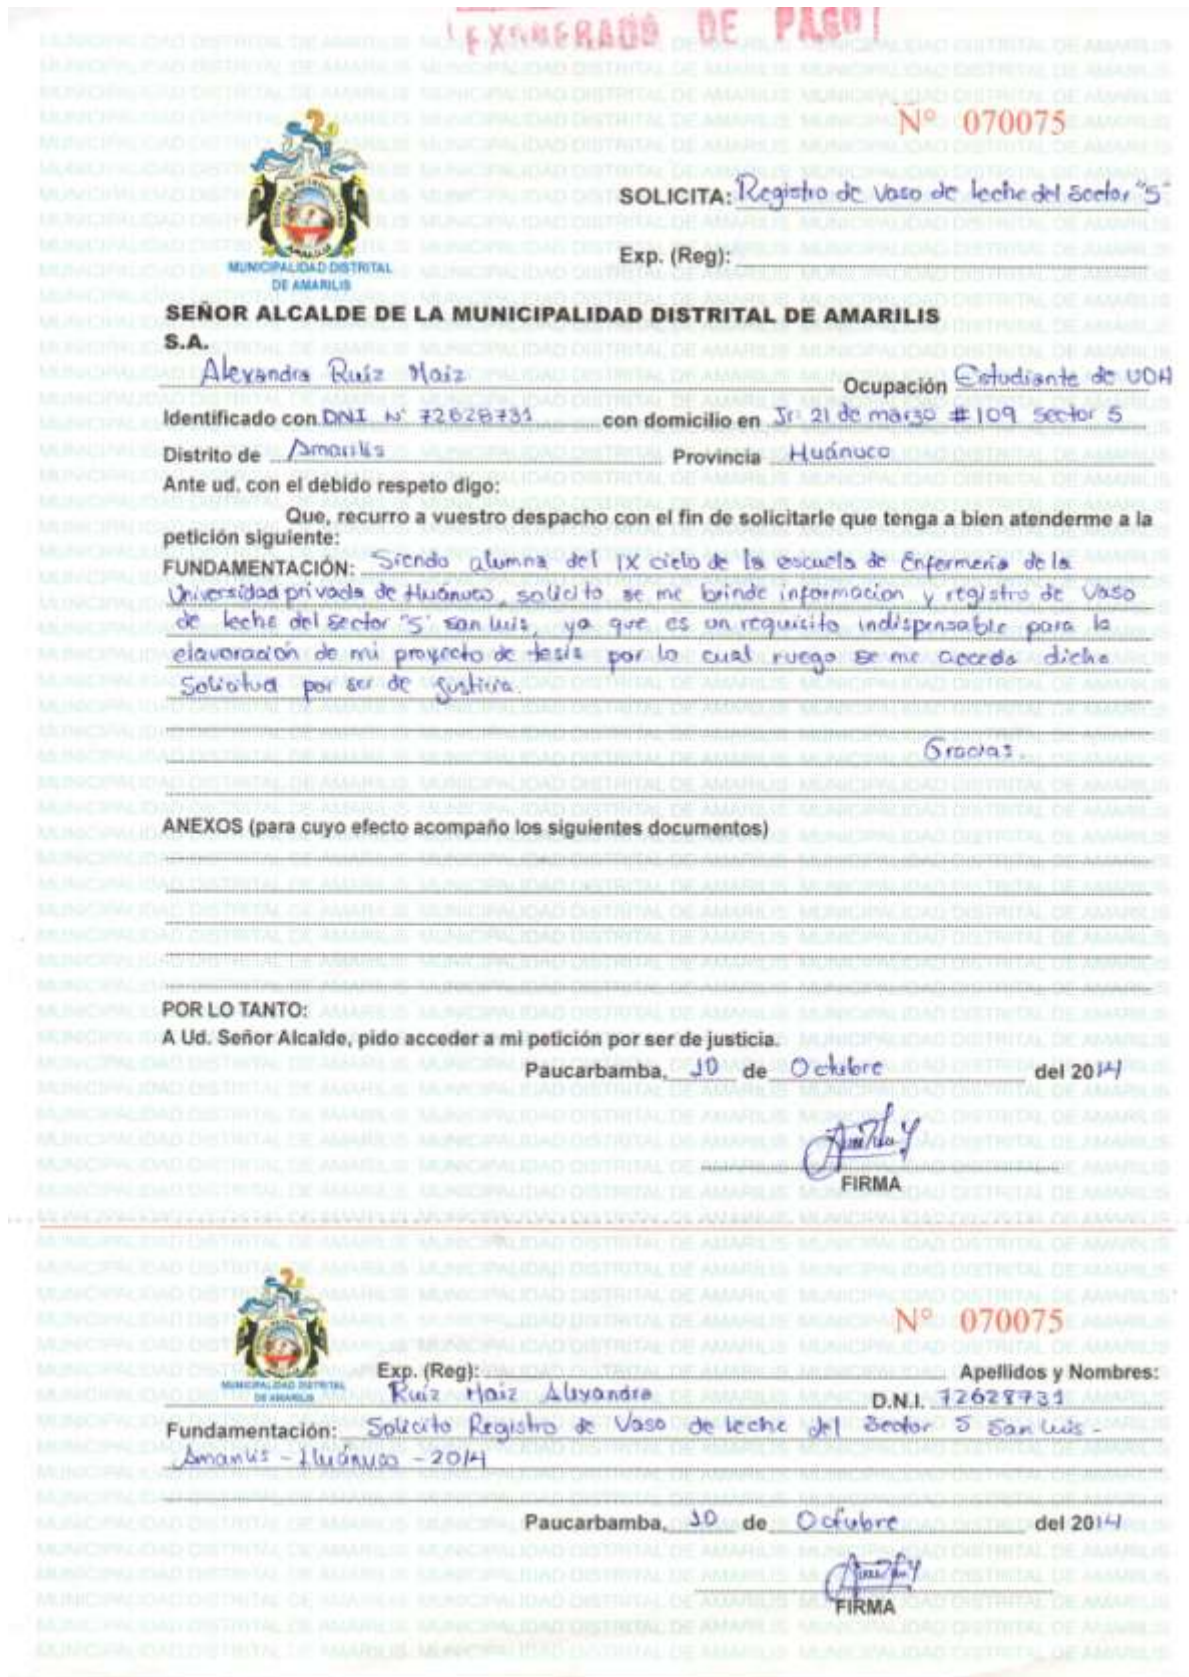 EXONERADO DE PAGO
Nº 070075
SOLICITA: Registro de Vaso de leche del Sector "5"
Exp. (Reg):
MUNICIPALIDAD DISTRITAL
DE AMARILIS
SEÑOR ALCALDE DE LA MUNICIPALIDAD DISTRITAL DE AMARILIS
S.A.
Alexandra Ruíz Maiz Ocupación Estudiante de UDH
Identificado con DNI Nº 72628731 con domicilio en Jr: 21 de marzo #109 sector 5
Distrito de Amarilis Provincia Huánuco
Ante ud. con el debido respeto digo:
Que, recurro a vuestro despacho con el fin de solicitarle que tenga a bien atenderme a la
petición siguiente:
FUNDAMENTACIÓN: Siendo alumna del IX ciclo de la escuela de Enfermería de la
Universidad privada de Huánuco, solicito se me brinde informacion y registro de Vaso
de leche del Sector "5" san luis, ya que es un requisito indispensable para la
elavoración de mi proyecto de tesis por lo cual ruego se me acceda dicha
Solicitud por ser de Justicia.
Gracias.
ANEXOS (para cuyo efecto acompaño los siguientes documentos)
POR LO TANTO:
A Ud. Señor Alcalde, pido acceder a mi petición por ser de justicia.
Paucarbamba, 10 de Octubre del 2014
FIRMA
Nº 070075
MUNICIPALIDAD DISTRITAL
DE AMARILIS
Exp. (Reg): Apellidos y Nombres:
Ruíz Maiz Alexandra D.N.I. 72628731
Fundamentación: Solicito Registro de Vaso de leche del Sector 5 San Luis -
Amarilis - Huánuco - 2014
Paucarbamba, 10 de Octubre del 2014
FIRMA